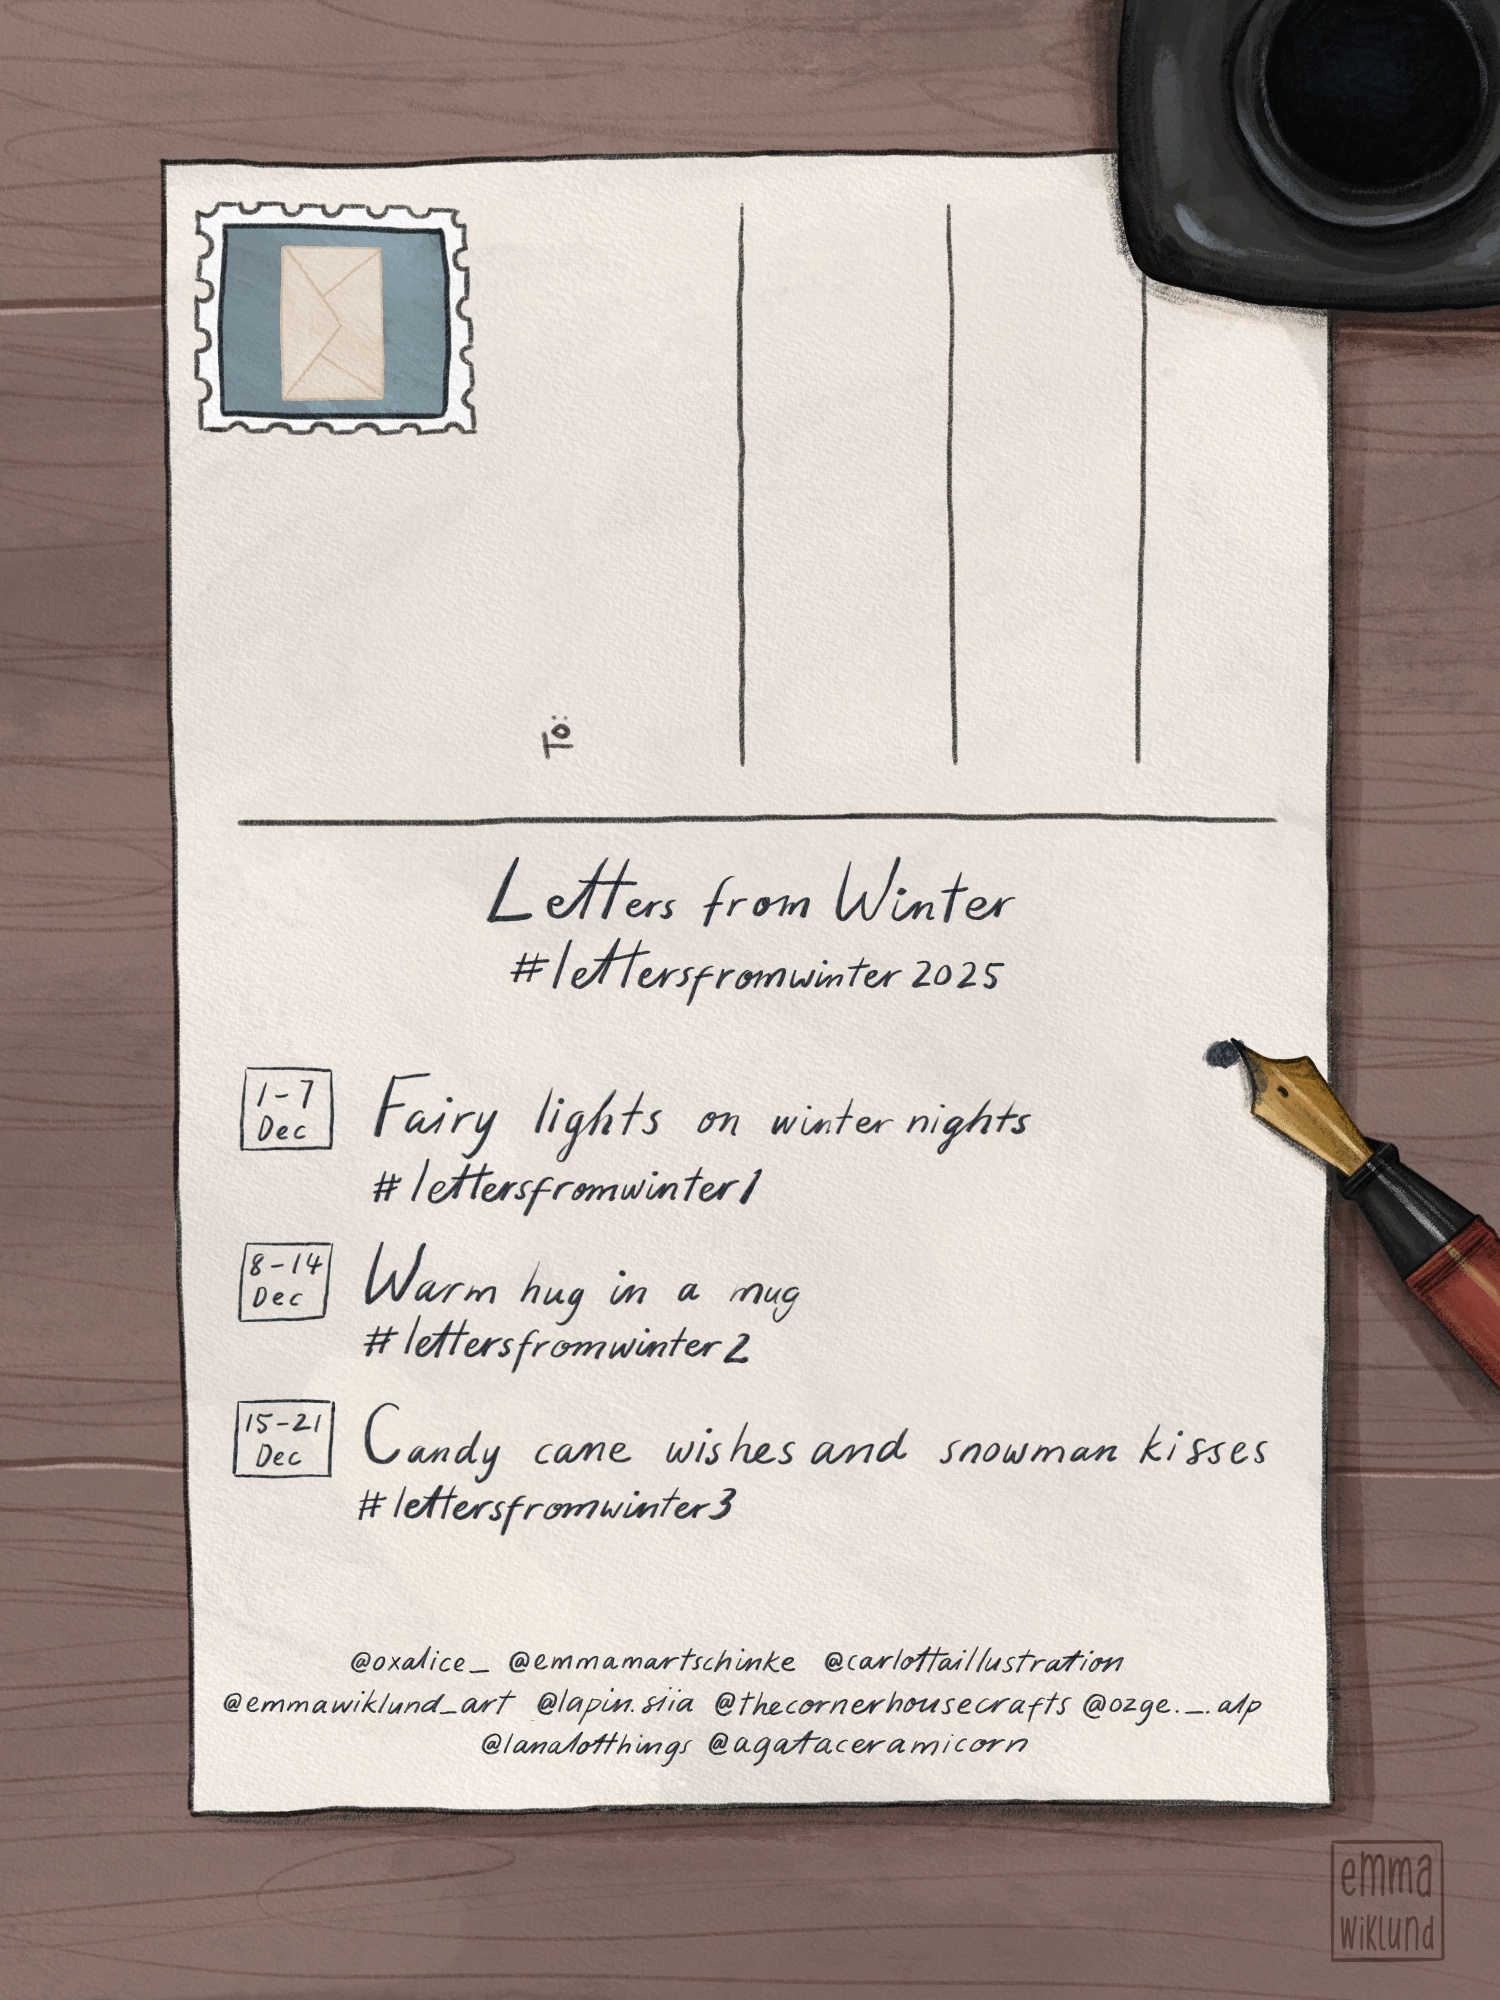 To:
Letters from Winter
#lettersfromwinter2025
1-7
Dec
Fairy lights on winter nights
#lettersfromwinter1
8-14
Dec
Warm hug in a mug
#lettersfromwinter2
15-21
Dec
Candy cane wishes and snowman kisses
#lettersfromwinter3
@oxalice_ @emmamartschinke @carlottaillustration
@emmawiklund_art @lapin.siia @thecornerhousecrafts @ozge._.alp
@lanalotthings @agataceramicorn
emma
wiklund